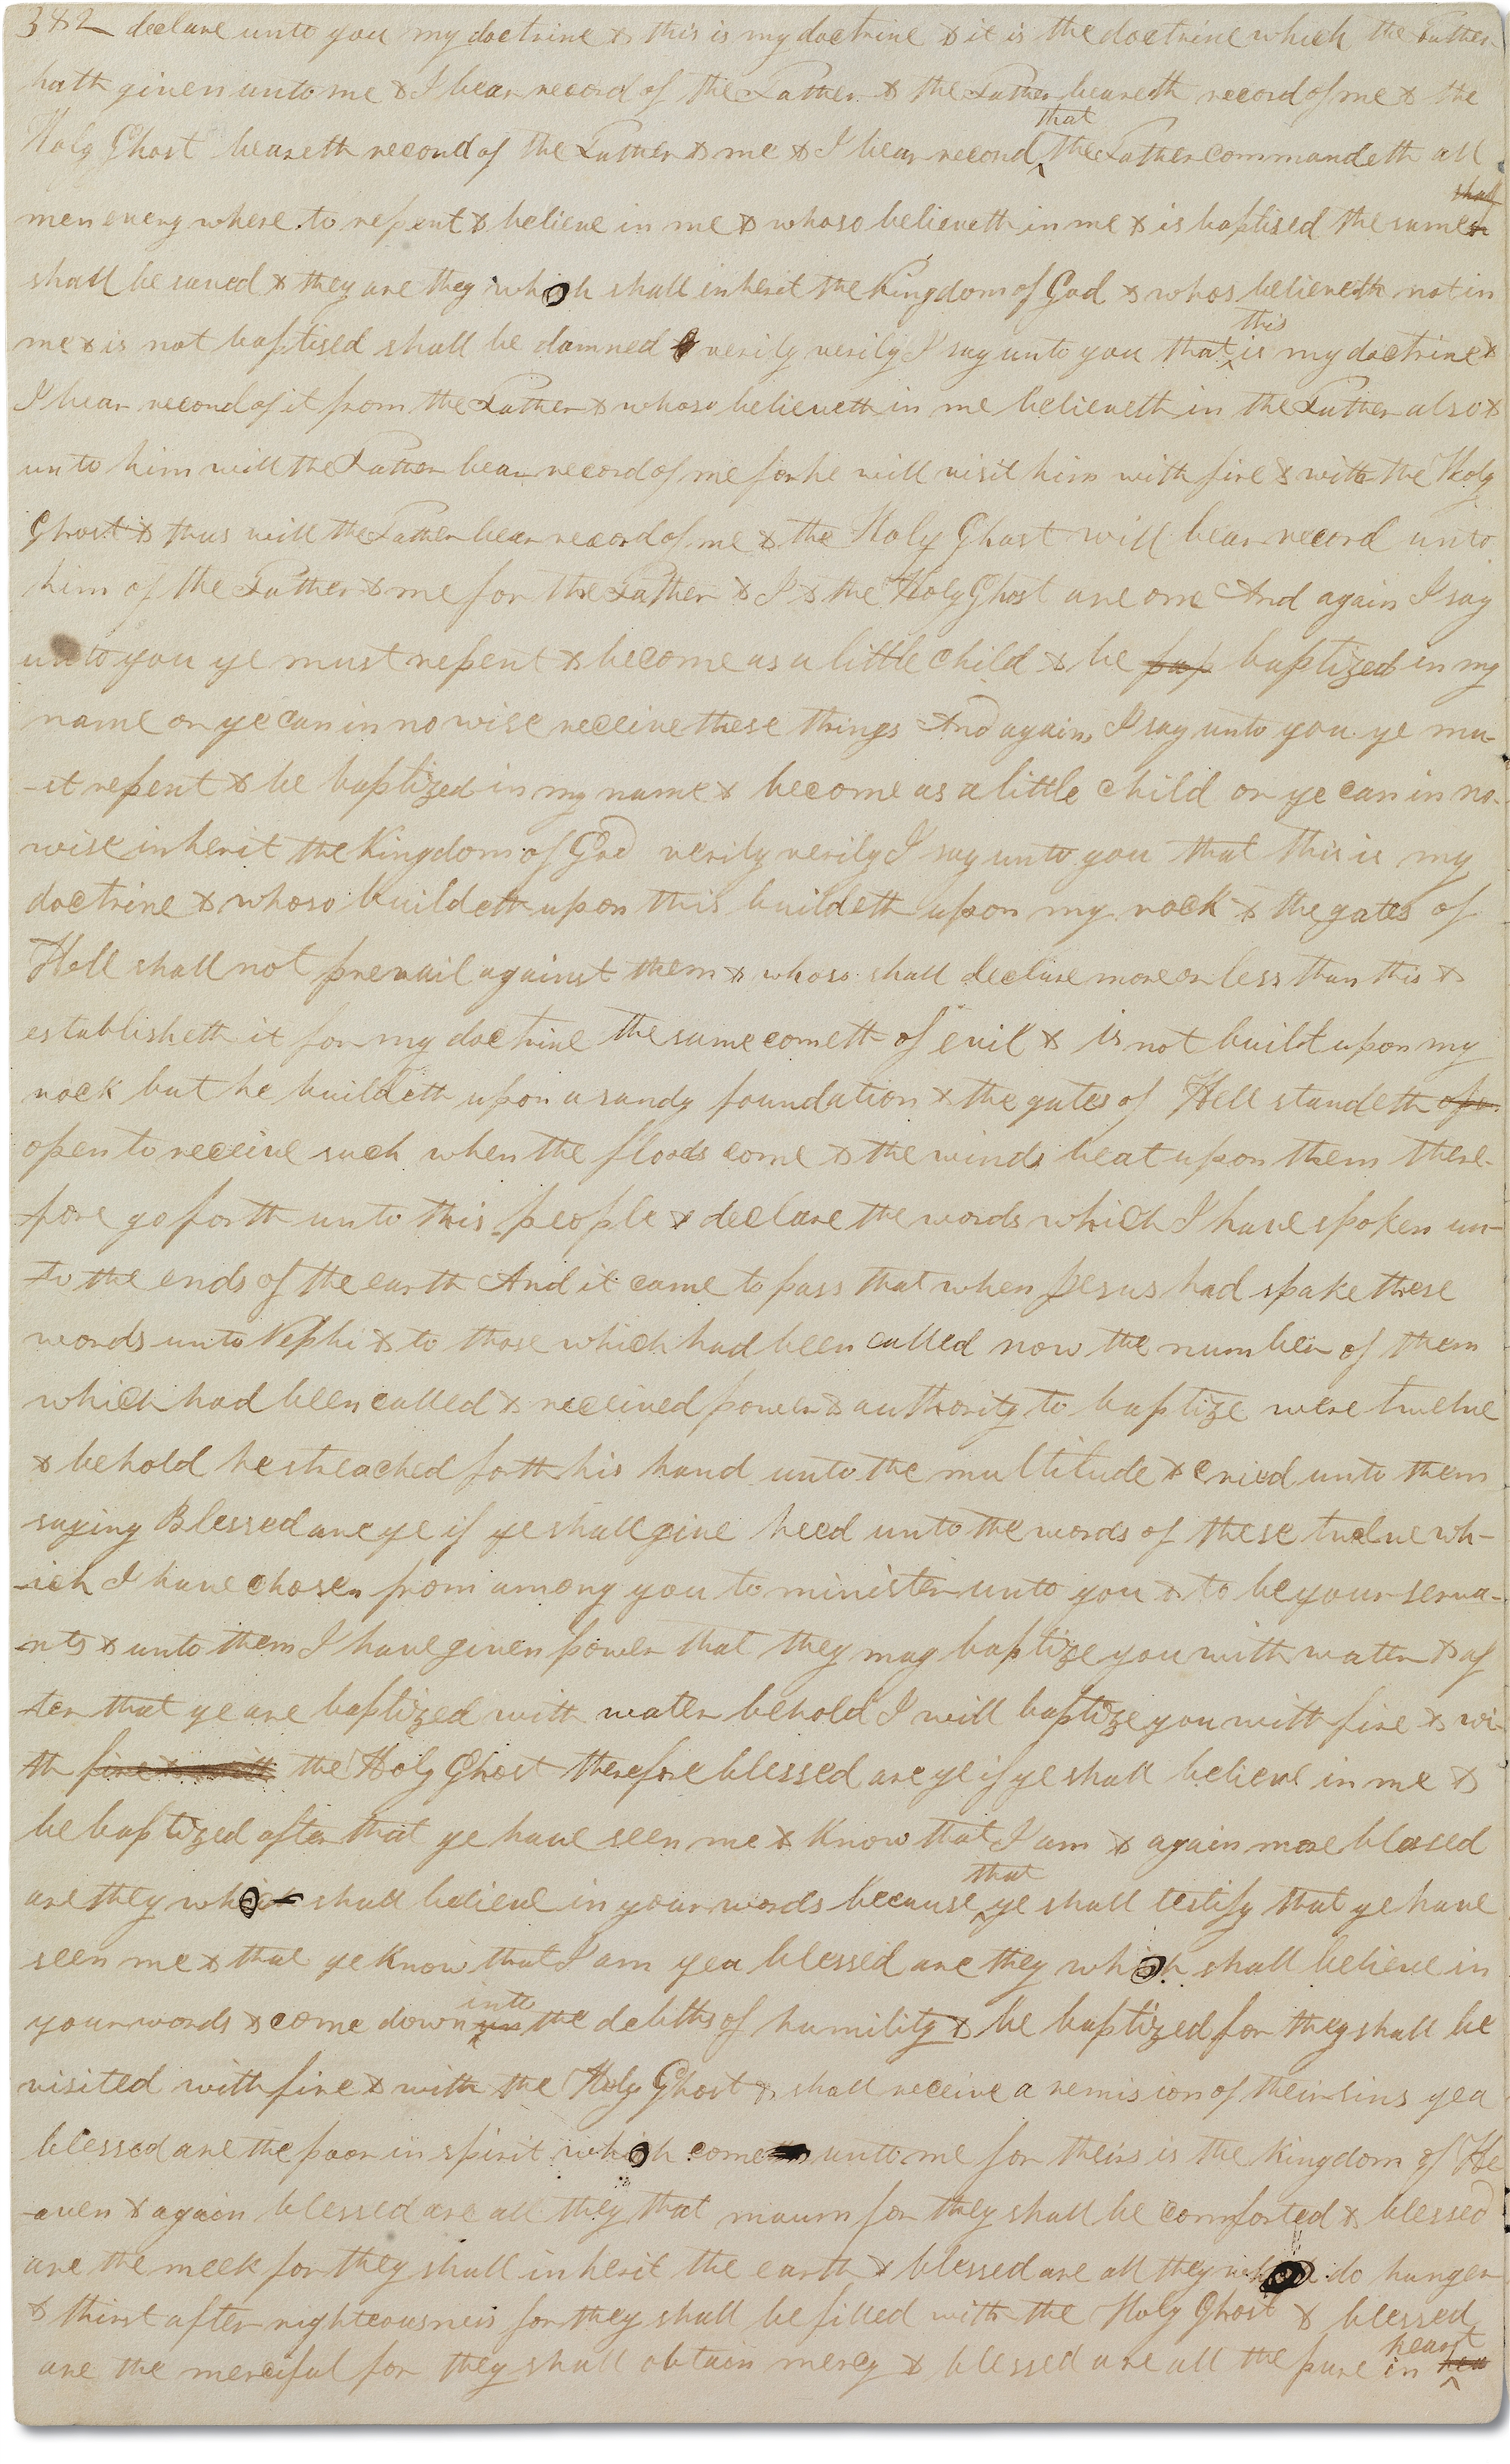 382 declare unto you my doctrine & this is my doctrine & it is the doctrine which the Father
hath given unto me & I bear record of the Father & the Father beareth record of me & the
that
Holy Ghost beareth record of the Father & me & I bear record ^ the Father commandeth all
shall
men every where to repent & believe in me & whoso believeth in me & is baptised the same
shall be saved & they are they which shall inherit the Kingdom of God & whos believeth not in
me & is not baptised shall be damned & verily verily I say unto you that ^ is my doctrine &
this
I bear record of it from the Father & whoso believeth in me believeth in the Father also &
unto him will the Father bear record of me for he will visit him with fire & with the Holy
Ghost & thus will the Father bear record of me & the Holy Ghost will bear record unto
him of the Father & me for the Father & I & the Holy Ghost are one And again I say
unto you ye must repent & become as a little child & be pap baptized in my
name or ye can in no wise receive these things And again I say unto you ye mu-
-st repent & be baptized in my name & become as a little child or ye can in no-
wise inherit the Kingdom of God verily verily I say unto you that this is my
doctrine & whoso buildeth upon this buildeth upon my rock & the gates of
Hell shall not prevail against them & whoso shall declare more or less than this &
establisheth it for my doctrine the same cometh of evil & is not built upon my
rock but he buildeth upon a sandy foundation & the gates of Hell standeth ope
open to receive such when the floods come & the winds beat upon them there-
-fore go forth unto this people & declare the words which I have spoken un-
-to the ends of the earth And it came to pass that when Jesus had spake these
words unto Nephi & to those which had been called now the number of them
which had been called & received power & authority to baptize were twelve
& behold he streached forth his hand unto the multitude & cried unto them
saying Blessed are ye if ye shall give heed unto the words of these twelve wh-
-ich I have chosen from among you to minister unto you & to be your serva-
-nts & unto them I have given power that they may baptize you with water & af
-ter that ye are baptized with water behold I will baptize you with fire & wi-
th fire & with the Holy Ghost therefore blessed are ye if ye shall believe in me &
be baptized after that ye have seen me & know that I am & again more blessed
that
are they which shall believe in your words because ^ ye shall testify that ye have
seen me & that ye know that I am yea blessed are they which shall believe in
into
your words & come down ^ the debths of humility & be baptized for they shall be
visited with fire & with the Holy Ghost & shall receive a remision of their sins yea
blessed are the poor in spirit which come unto me for theirs is the kingdom of He
-aven & again blessed are all they that mourn for they shall be comforted & blessed
are the meek for they shall inherit the earth & blessed are all they do hunger
& thirst after righteousness for they shall be filled with the Holy Ghost & blessed
heart
are the merciful for they shall obtain mercy & blessed are all the pure in ^ hea